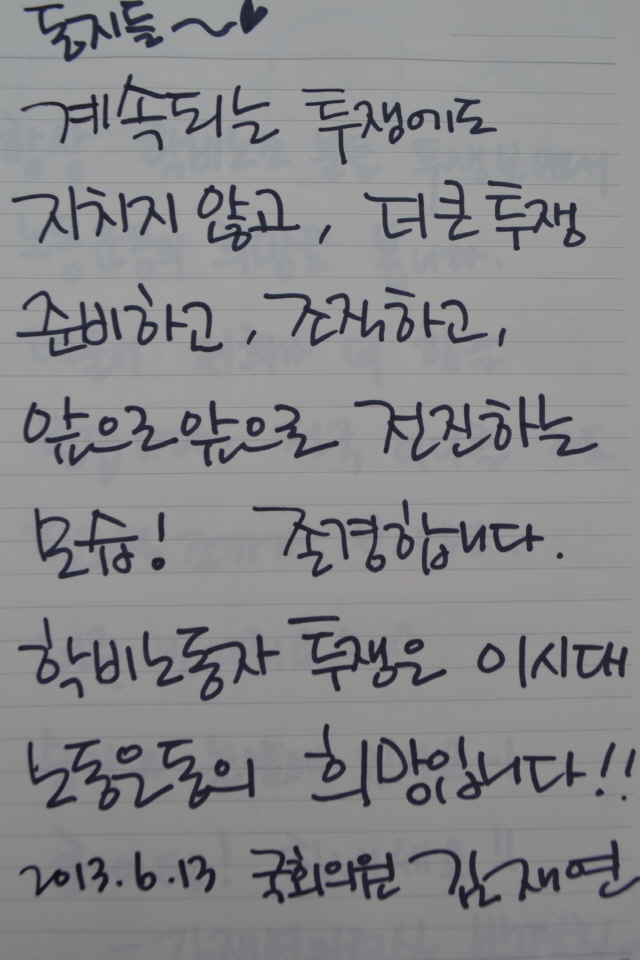 동지들~♥
계속되는 투쟁에도
지치지 않고, 더 큰 투쟁
준비하고, 조직하고,
앞으로 앞으로 전진하는
모습! 존경합니다.
학비노동자 투쟁은 이시대
노동운동의 희망입니다!!
2013.6.13 국회의원 김재연